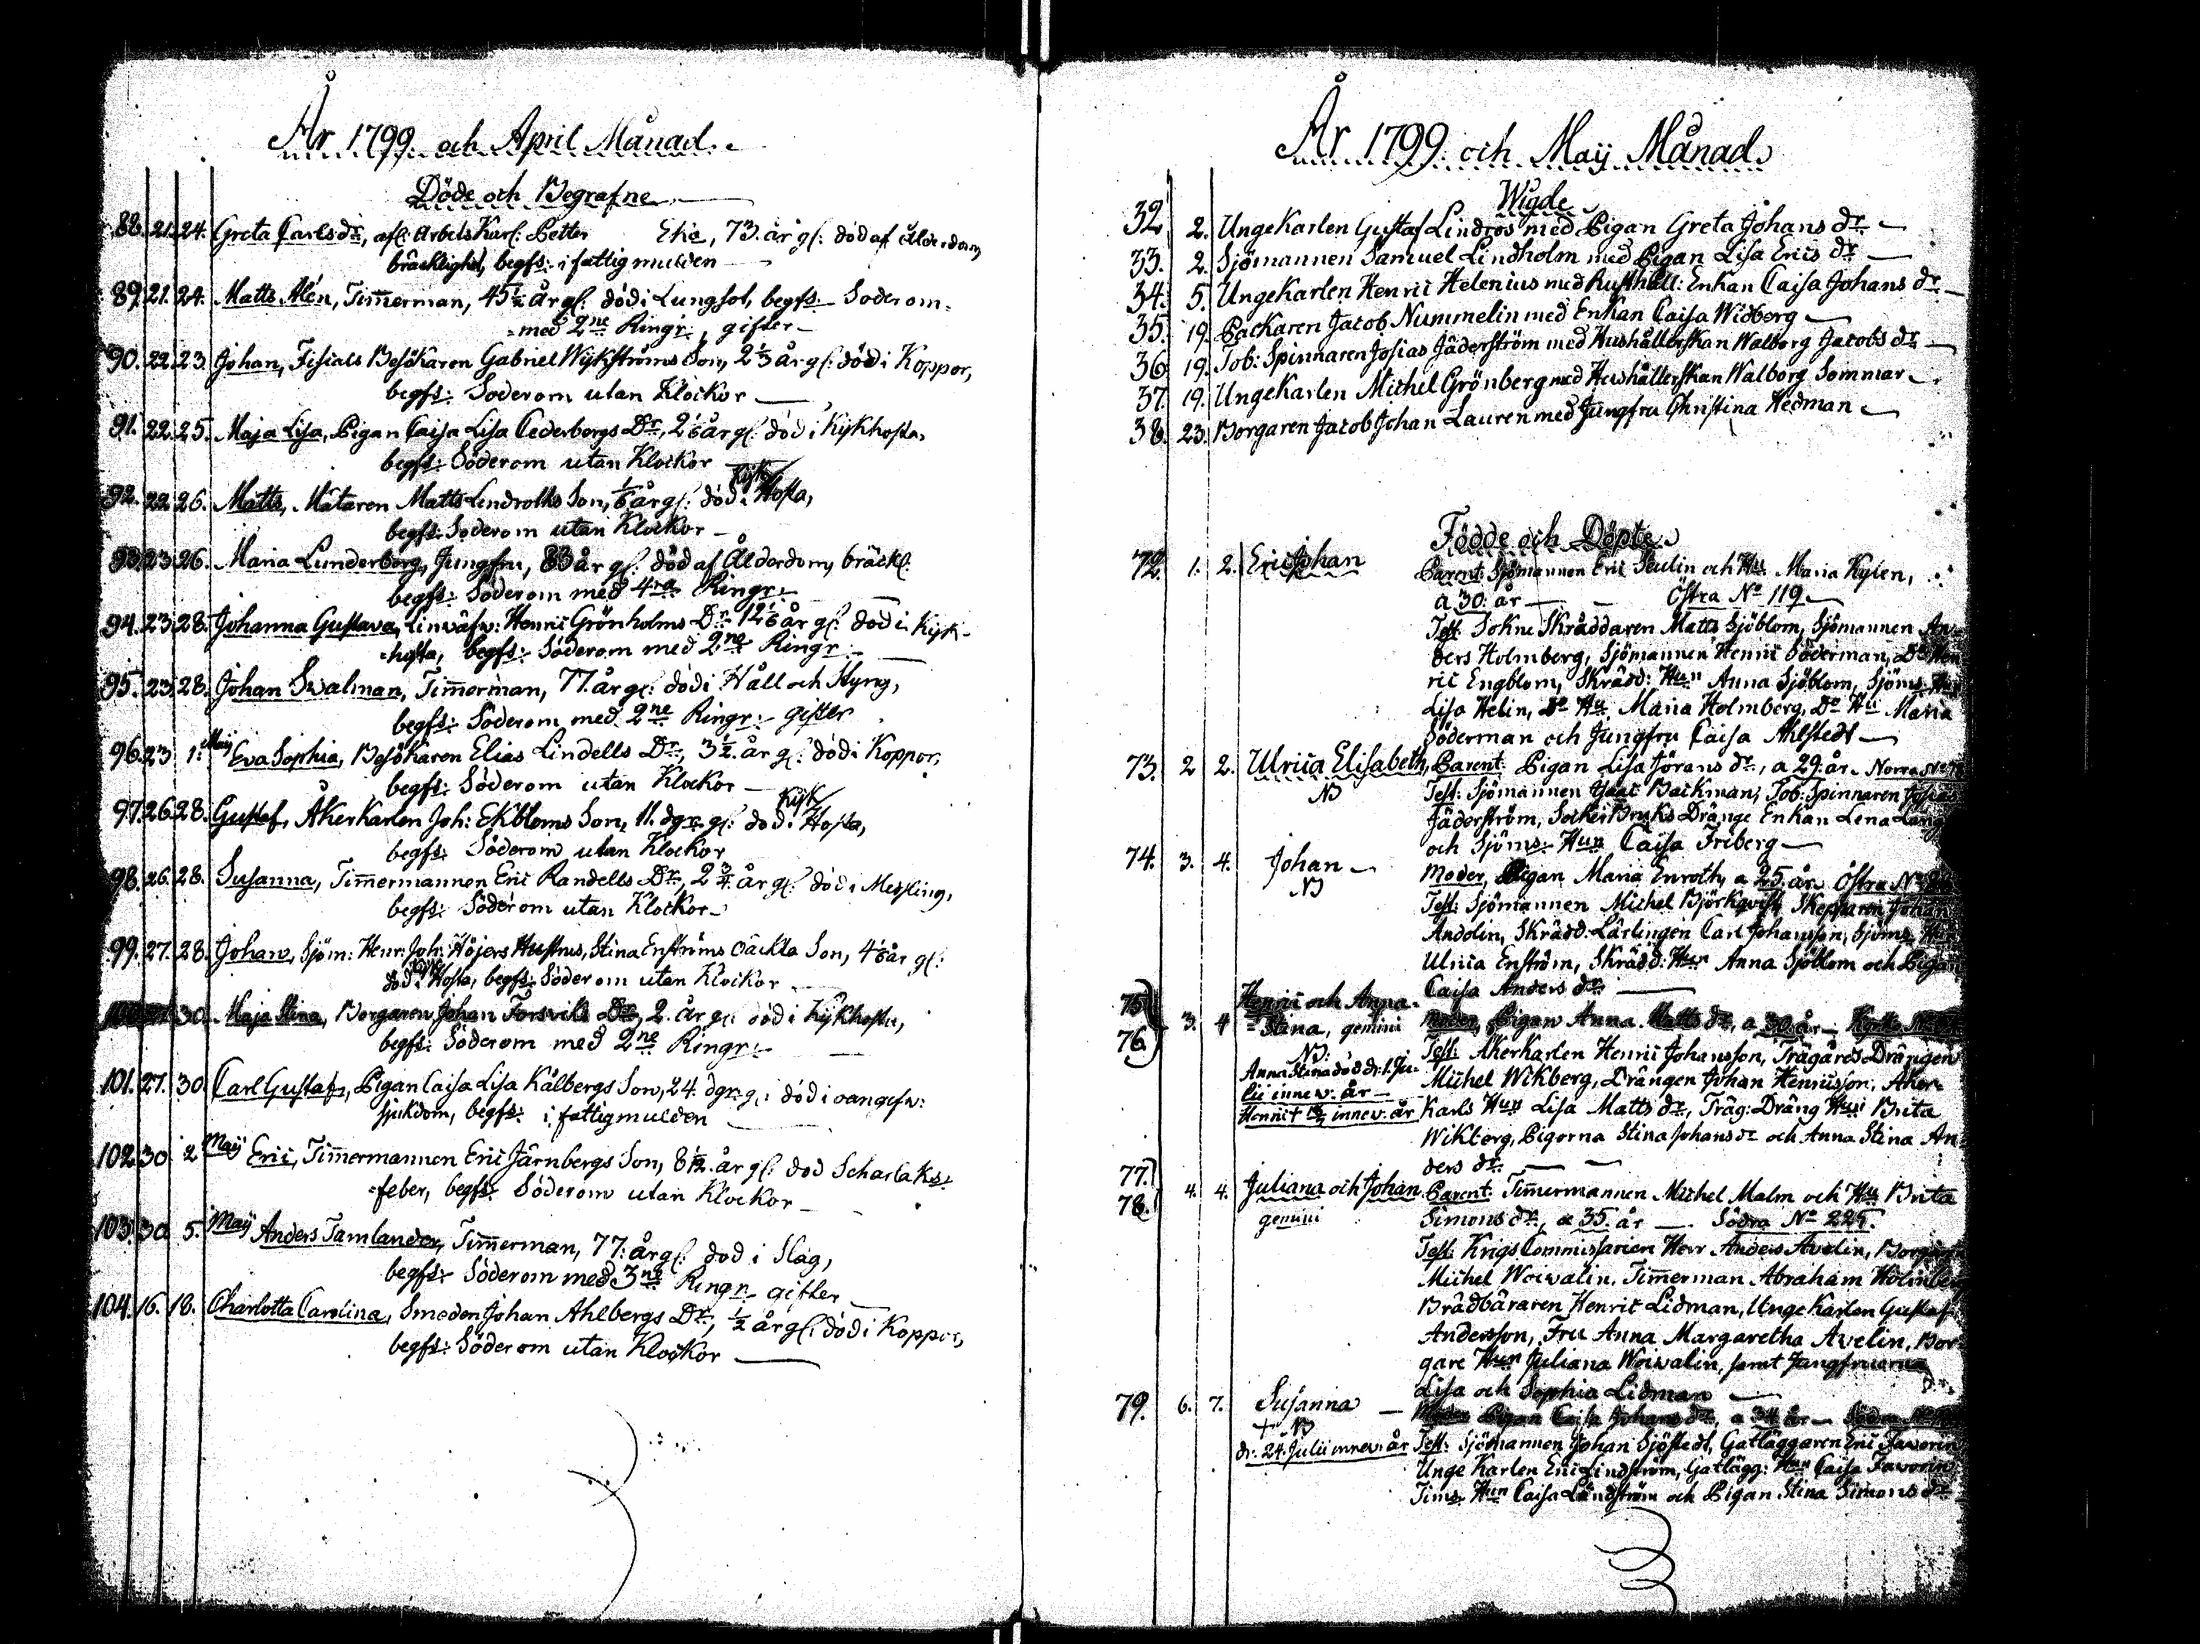 År 1799. och April Månad.
Döde och Begrafne
88. 21. 24. Greta Carls dr, afl: Arbets Karl: Petter Ekes, 73. år gl: död af Ålderdom
bräcklighet, begfs: i fattigmulden
89. 21. 24. Matts Alén, Timmerman, 45 1/2 år gl: död i Lungsot, begfs: Söder om
med 2ne Ringr:, gifter
90. 22. 23. Johan, Fiskals Besökaren Gabriel Wykströms Son, 2 1/3 år gl: död i Koppor,
begfs: Söder om utan Klockor
91. 22. 25. Maja Lisa, Pigan Caisa Lisa Cederbergs Dr, 2 1/6 år gl: död i Kijkhosta,
begfs: Söder om utan Klockor
92. 22. 26. Matts, Mätaren Matts Lindroths Son, 1/6 år gl: död i Kijk Hosta,
begfs: Söder om utan Klockor
93. 23. 26. Maria Lunderberg, Jungfru, 83 år gl: död af Ålderdom, bräckl:
begfs: Söder om med 4ra Ringr:
94. 23. 28. Johanna Gustava, Linwäfw: Henric Grönholms Dr 12 1/6 år gl: död i Kijk-
hosta, begfs: Söder om med 2ne Ringr:
95. 23. 28. Johan Swalman, Timmerman, 77. år gl: död i Håll och Styng,
begfs: Söder om med 2ne Ringr: gifter
96. 23 1. Maij Eva Sophia, Besökaren Elias Lindells Dr, 3 1/2. år gl: död i Koppor,
begfs: Söder om utan Klockor
97. 26. 28. Gustaf, Åkerkarlen Joh: Ekbloms Son, 11. dgr gl: död i Kijk Hosta,
begfs: Söder om utan Klockor
98. 26. 28. Susanna, Timmermannen Eric Randells Dr, 2 3/4 år gl: död i Messling,
begfs: Söder om utan Klockor
99. 27. 28. Johan, Sjöm: Henr: Joh: Höjers Hustrus, Stina Enströms oäckta Son, 4 1/6 år gl:
död i Kijk Hosta, begfs: Söder om utan Klockor
30. Maja Stina, Borgaren Johan Forsvik Dr, 2. år gl: död i Kijkhosta,
begfs: Söder om med 2ne Ringr:
101. 27. 30 Carl Gustaf, Pigan Caisa Lisa Kålbergs Son, 24. dgr gl: död i oangifw:
sjukdom, begfs: i fattigmulden
102. 30 2 Maij Eric, Timmermannen Eric Järnbergs Son, 8 1/12. år gl: död Scharlaks-
feber, begfs: Söder om utan Klockor
103. 30 5. Maij Anders Tamlander, Timmerman, 77. år gl: död i Slag,
begfs: Söder om med 3ne Ringr: gifter
104. 16. 18. Charlotta Carolina, Smeden Johan Ahlbergs Dr, 1/2 år gl: död i Koppor,
begfs: Söder om utan Klockor
År 1799. och Maij Månad
Wigde
32. 2. Unge Karlen Gustaf Lindros med Pigan Greta Johans dr
33. 2. Sjömannen Samuel Lindholm med Pigan Lisa Erics dr
34. 5. Unge Karlen Henric Helenius med Rusthåll: Enkan Caisa Johans dr
35. 19. Packaren Jacob Nummelin med Enkan Caisa Widberg
36. 19. Tob: Spinnaren Josias Jäderström med Hushållerskan Walborg Jacobs dr
37. 19. Unge Karlen Michel Grönberg med Hushållerskan Walborg Sommar
38. 23. Borgaren Jacob Johan Lauren med Jungfru Christina Hedman
Födde och Döpte
72. 1. 2. Eric Johan Parent: Sjömannen Eric Seulin och Hu Maria Kylen,
a 30. år Östra No 119
Test: Sokne Skräddaren Matts Sjöblom, Sjömannen An-
ders Holmberg, Sjömannen Henric Söderman, Do Hen
ric Engblom, Skrädd: Hun Anna Sjöblom, Sjöms Hu
Lisa Helin, Do Hu Maria Holmberg, Do Hu Maria
Söderman och Jungfru Caisa Ahlstedt
73. 2 2. Ulrica Elisabeth, Parent: Pigan Lisa Jörans dr, a 29. år Norra No
NB Test: Sjömannen Isaac Backman, Tob: Spinnaren Josias
Jäderström, Socker Bruks Drängs Enkan Lena
och Sjöms Hun Caisa Friberg
74. 3. 4. Johan Moder, Pigan Maria Enroth, a 25. år Östra No
NB Test: Sjömannen Michel Björkqvist, Skepparen Johan
Andolin, Skrädd: Lärlingen Carl Johansson, Sjöms Hu
Ulrica Enström, Skrädd: Hun Anna Sjöblom och Pigan
Caisa Anders dr
75) 76) 3. 4 Henric och Anna
Stina, gemini Moder, Pigan Anna Matts dr, a 30 år
NB: Test: Åkerkarlen Henric Johansson, Trägårds Drängen
Anna Stina död d. 1. Ju- Michel Wikberg, Drängen Johan Henricsson, Åker-
lii innew: år Karls Hun Lisa Matts dr, Träg: Dräng Hun Brita
Henric innew: år Wikberg, Pigorna Stina Johans dr och Anna Stina An-
ders dr
77.) 78.) 4. 4. Juliana och Johan Parent: Timmermannen Michel Malm och Hu Brita
gemini Simons dr, a 35. år Södra No 225.
Test: Krigs Commissarien Herr Anders Avelin, Borgaren
Michel Woiwalin, Timmerman Abraham Holmberg
Brädbäraren Henric Lidman, Unge Karlen Gustaf
Andersson, Fru Anna Margaretha Avelin, Bor-
gare Hun Juliana Woiwalin, samt Jungfruerna
Lisa och Sophia Lidman
79. 6. 7. Susanna Moder Pigan Caisa Johans dr, a 34 år Södra No
+ NB
d: 24. Julii innew: år Test: Sjömannen Johan Sjöstedt, Gatläggaren Eric Favorin
Unge Karlen Eric Lindström, Gatlägg: Hun Caisa Favorin
Tims Hun Caisa Lindström och Pigan Stina Simons dr